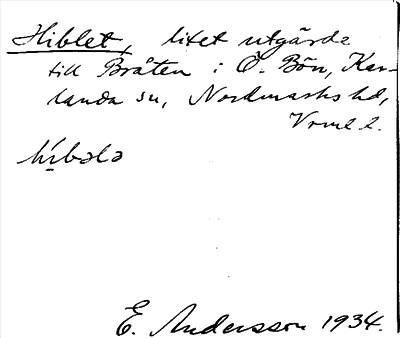 Hiblet, litet utgärde
till Bråten i Ö. Bön, Kar-
landa sn, Nordmarks hd,
Vrml l.
E. Andersson 1934.